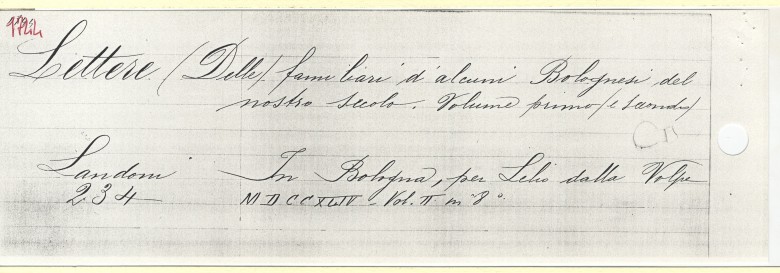 Lettere (Delle) famigliari d'alcuni Bolognesi del
nostro secolo. Volume primo (e secondo)
Landoni In Bologna, per Lelio dalla Volpe
234 MDCCXLIV - Vol. II in 8°.